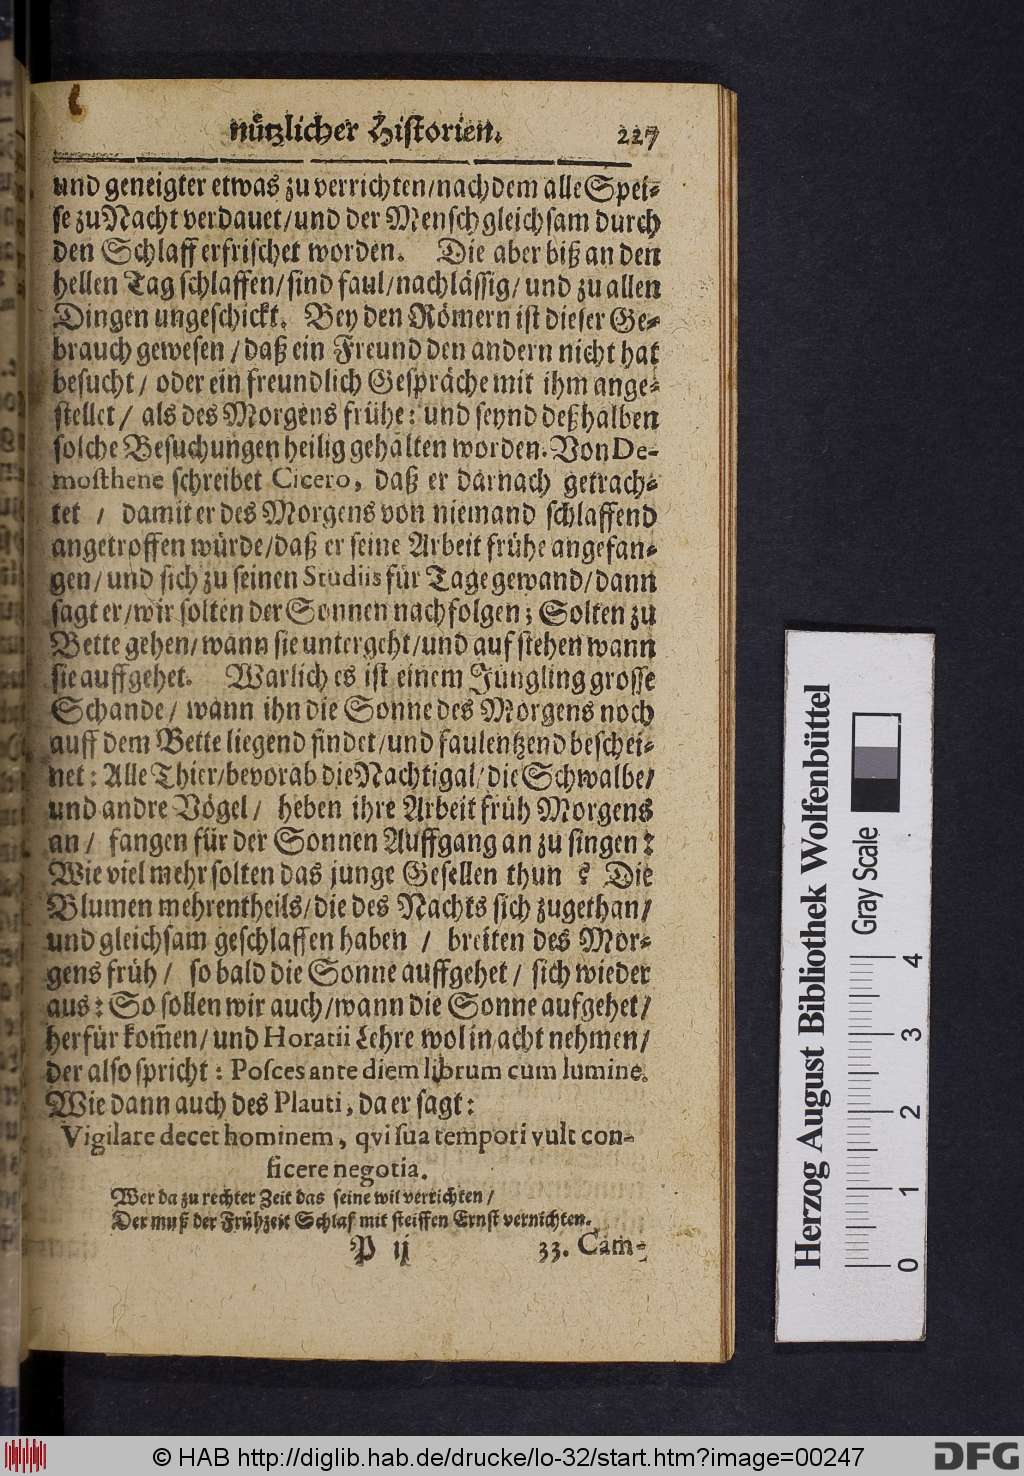 nützlicher Historien. 227
und geneigter etwas zu verrichten/nachdem alle Spei-
se zu Nacht verdauet/und der Mensch gleichsam durch
den Schlaff erfrischet worden. Die aber biß an den
hellen Tag schlaffen/sind faul/nachlässig/und zu allen
Dingen ungeschickt. Bey den Römern ist dieser Ge-
brauch gewesen/daß ein Freund den andern nicht hat
besucht/oder ein freundlich Gespräche mit ihm ange-
stellet/als des Morgens frühe: und seynd deßhalben
solche Besuchungen heilig gehalten worden. Von De-
mosthene schreibet Cicero, daß er darnach getrach-
tet / damit er des Morgens von niemand schlaffend
angetroffen würde/daß er seine Arbeit frühe angefan-
gen/und sich zu seinen Studiis für Tage gewand/dann
sagt er/wir solten der Sonnen nachfolgen; Solten zu
Bette gehen/wann sie untergeht/und aufstehen wann
sie auffgehet. Warlich es ist einem Jüngling grosse
Schande/wann ihn die Sonne des Morgens noch
auff dem Bette liegend findet/und faulentzend beschei-
net: Alle Thier/bevorab die Nachtigal/die Schwalbe/
und andre Vögel/ heben ihre Arbeit früh Morgens
an/ fangen für der Sonnen Auffgang an zu singen:
Wie viel mehr solten das junge Gesellen thun? Die
Blumen mehrentheils/die des Nachts sich zugethan/
und gleichsam geschlaffen haben / breiten des Mor-
gens früh/ so bald die Sonne auffgehet/ sich wieder
aus: So sollen wir auch/wann die Sonne aufgehet/
herfür kom̃en/und Horatii Lehre wol in acht nehmen/
der also spricht: Posces ante diem librum cum lumine.
Wie dann auch des Plauti, da er sagt:
Vigilare decet hominem, qvi sua tempori vult con-
ficere negotia.
Wer da zu rechter Zeit das seine wil verrichten/
Der muß der Frühzeit Schlaf mit steiffen Ernst vernichten.
P ij 33. Cam-
Herzog August Bibliothek Wolfenbüttel
Gray Scale
0 1 2 3 4
© HAB http://diglib.hab.de/drucke/lo-32/start.htm?image=00247
DFG